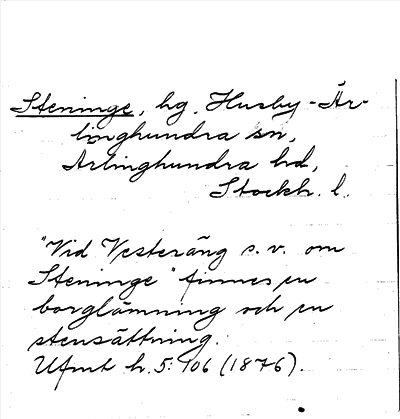 Steninge, hg, Husby-Är-
linghundra sn,
Ärlinghundra hd,
Stockh. l.
"Vid Vesteräng s.v. om
Steninge" finnes en
borglämning och en
stensättning.
Ufmt h.5:106 (1876).